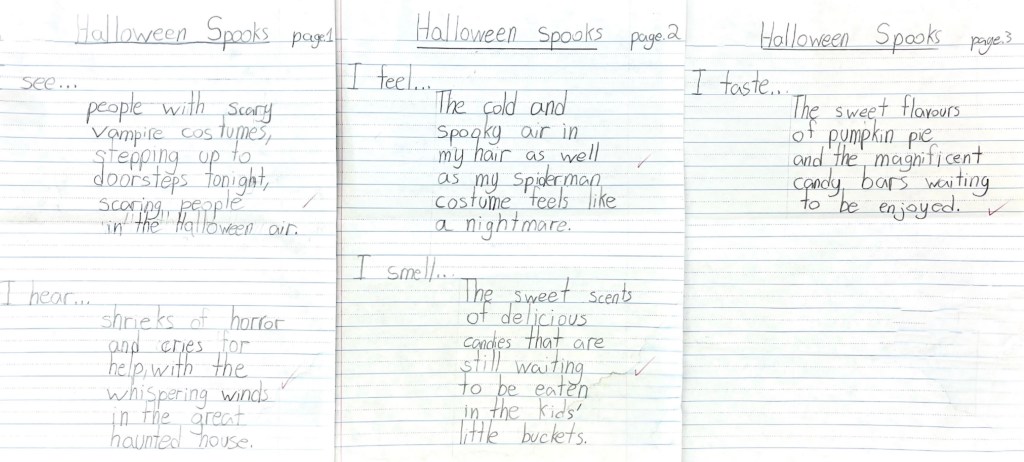 Halloween Spooks page.1
see...
people with scary
vampire costumes,
stepping up to
doorsteps tonight,
scaring people
in the Halloween air.
I hear...
shrieks of horror
and cries for
help, with the
whispering winds
in the great
haunted house.
Halloween Spooks page.2
I feel...
The cold and
spooky air in
my hair as well
as my spiderman
costume feels like
a nightmare.
I smell...
The sweet scents
of delicious
candies that are
still waiting
to be eaten
in the kids'
little buckets.
Halloween Spooks page.3
I taste...
The sweet flavours
of pumpkin pie
and the magnificent
candy bars waiting
to be enjoyed.